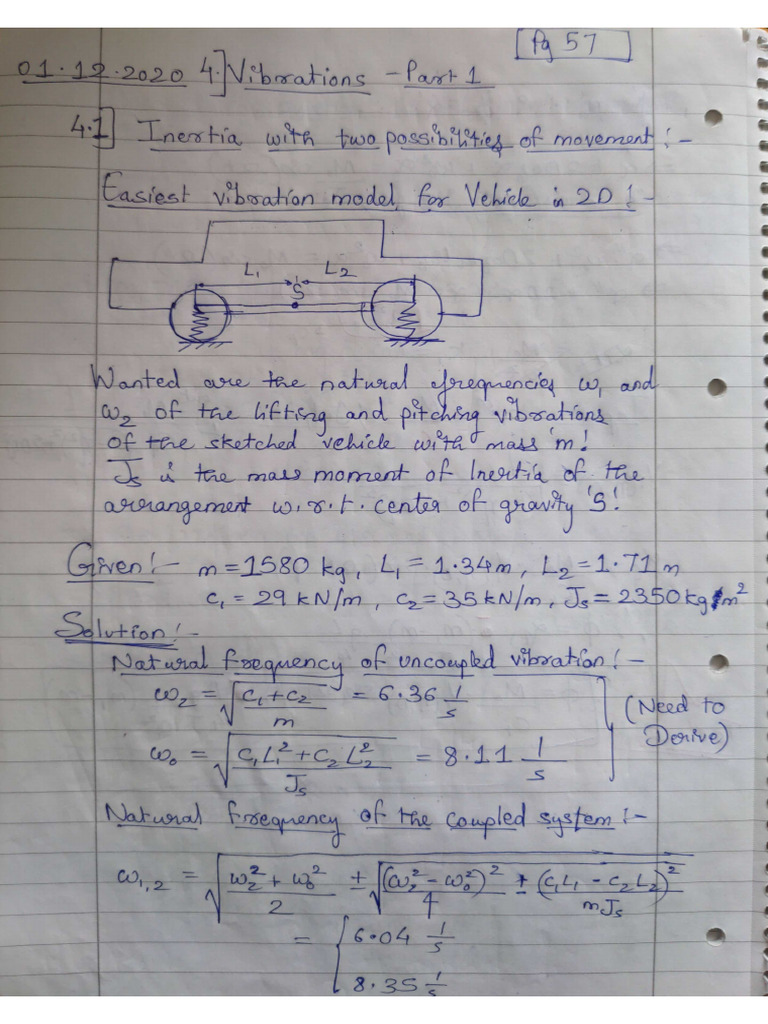 Pg 57
01.12.2020 4.] Vibrations - Part 1
4.1] Inertia with two possibilities of movement :-
Easiest vibration model, for Vehicle in 2D :-
L₁ S L₂
Wanted are the natural frequencies ω₁ and
ω₂ of the lifting and pitching vibrations
of the sketched vehicle with mass 'm!
Js is the mass moment of Inertia of the
arrangement w.r.t. center of gravity 'S!
Given :- m = 1580 kg, L₁ = 1.34m, L₂ = 1.71 m
c₁ = 29 kN/m, c₂ = 35 kN/m, Js = 2350 kg m²
Solution :-
Natural frequency of uncoupled vibration :-
ω₂ = √((c₁ + c₂)/m) = 6.36 1/s
(Need to
Derive)
ω₀ = √((c₁L₁² + c₂L₂²)/Js) = 8.11 1/s
Natural frequency of the coupled system :-
ω₁,₂ = √((ω₂² + ω₀²)/2 ± √((ω₂² - ω₀²)²/4 + (c₁L₁ - c₂L₂)²/mJs))
= { 6.04 1/s
8.35 1/s